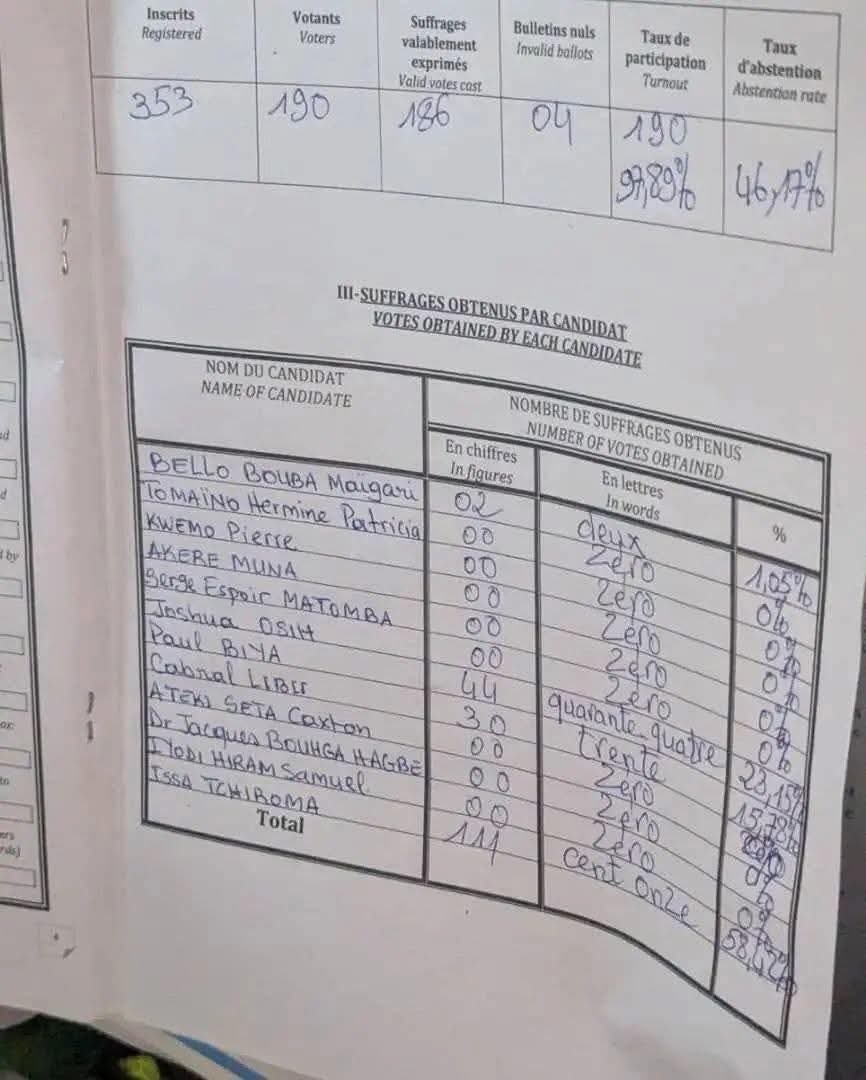 Inscrits
Registered
Votants
Voters
Suffrages
valablement
exprimés
Valid votes cast
Bulletins nuls
Invalid ballots
Taux de
participation
Turnout
Taux
d'abstention
Abstention rate
353
190
186
04
190
97,89%
46,17%
III-SUFFRAGES OBTENUS PAR CANDIDAT
VOTES OBTAINED BY EACH CANDIDATE
NOM DU CANDIDAT
NAME OF CANDIDATE
NOMBRE DE SUFFRAGES OBTENUS
NUMBER OF VOTES OBTAINED
En chiffres
In figures
En lettres
In words
%
BELLO BOUBA Maïgari 02 deux 1,05%
TOMAÏNO Hermine Patricia 00 zéro 0%
KWEMO Pierre 00 zéro 0%
AKERE MUNA 00 zéro 0%
Serge Espoir MATOMBA 00 zéro 0%
Joshua OSIH 00 zéro 0%
Paul BIYA 44 quarante-quatre 23,15%
Cabral LIBII 30 trente 15,78%
ATEKI SETA Caxton 00 zéro
Dr Jacques BOUHGA HAGBE 00 zéro 0%
HIRAM Samuel 00 zéro 0%
ISSA TCHIROMA 111 cent onze 58,42%
Total